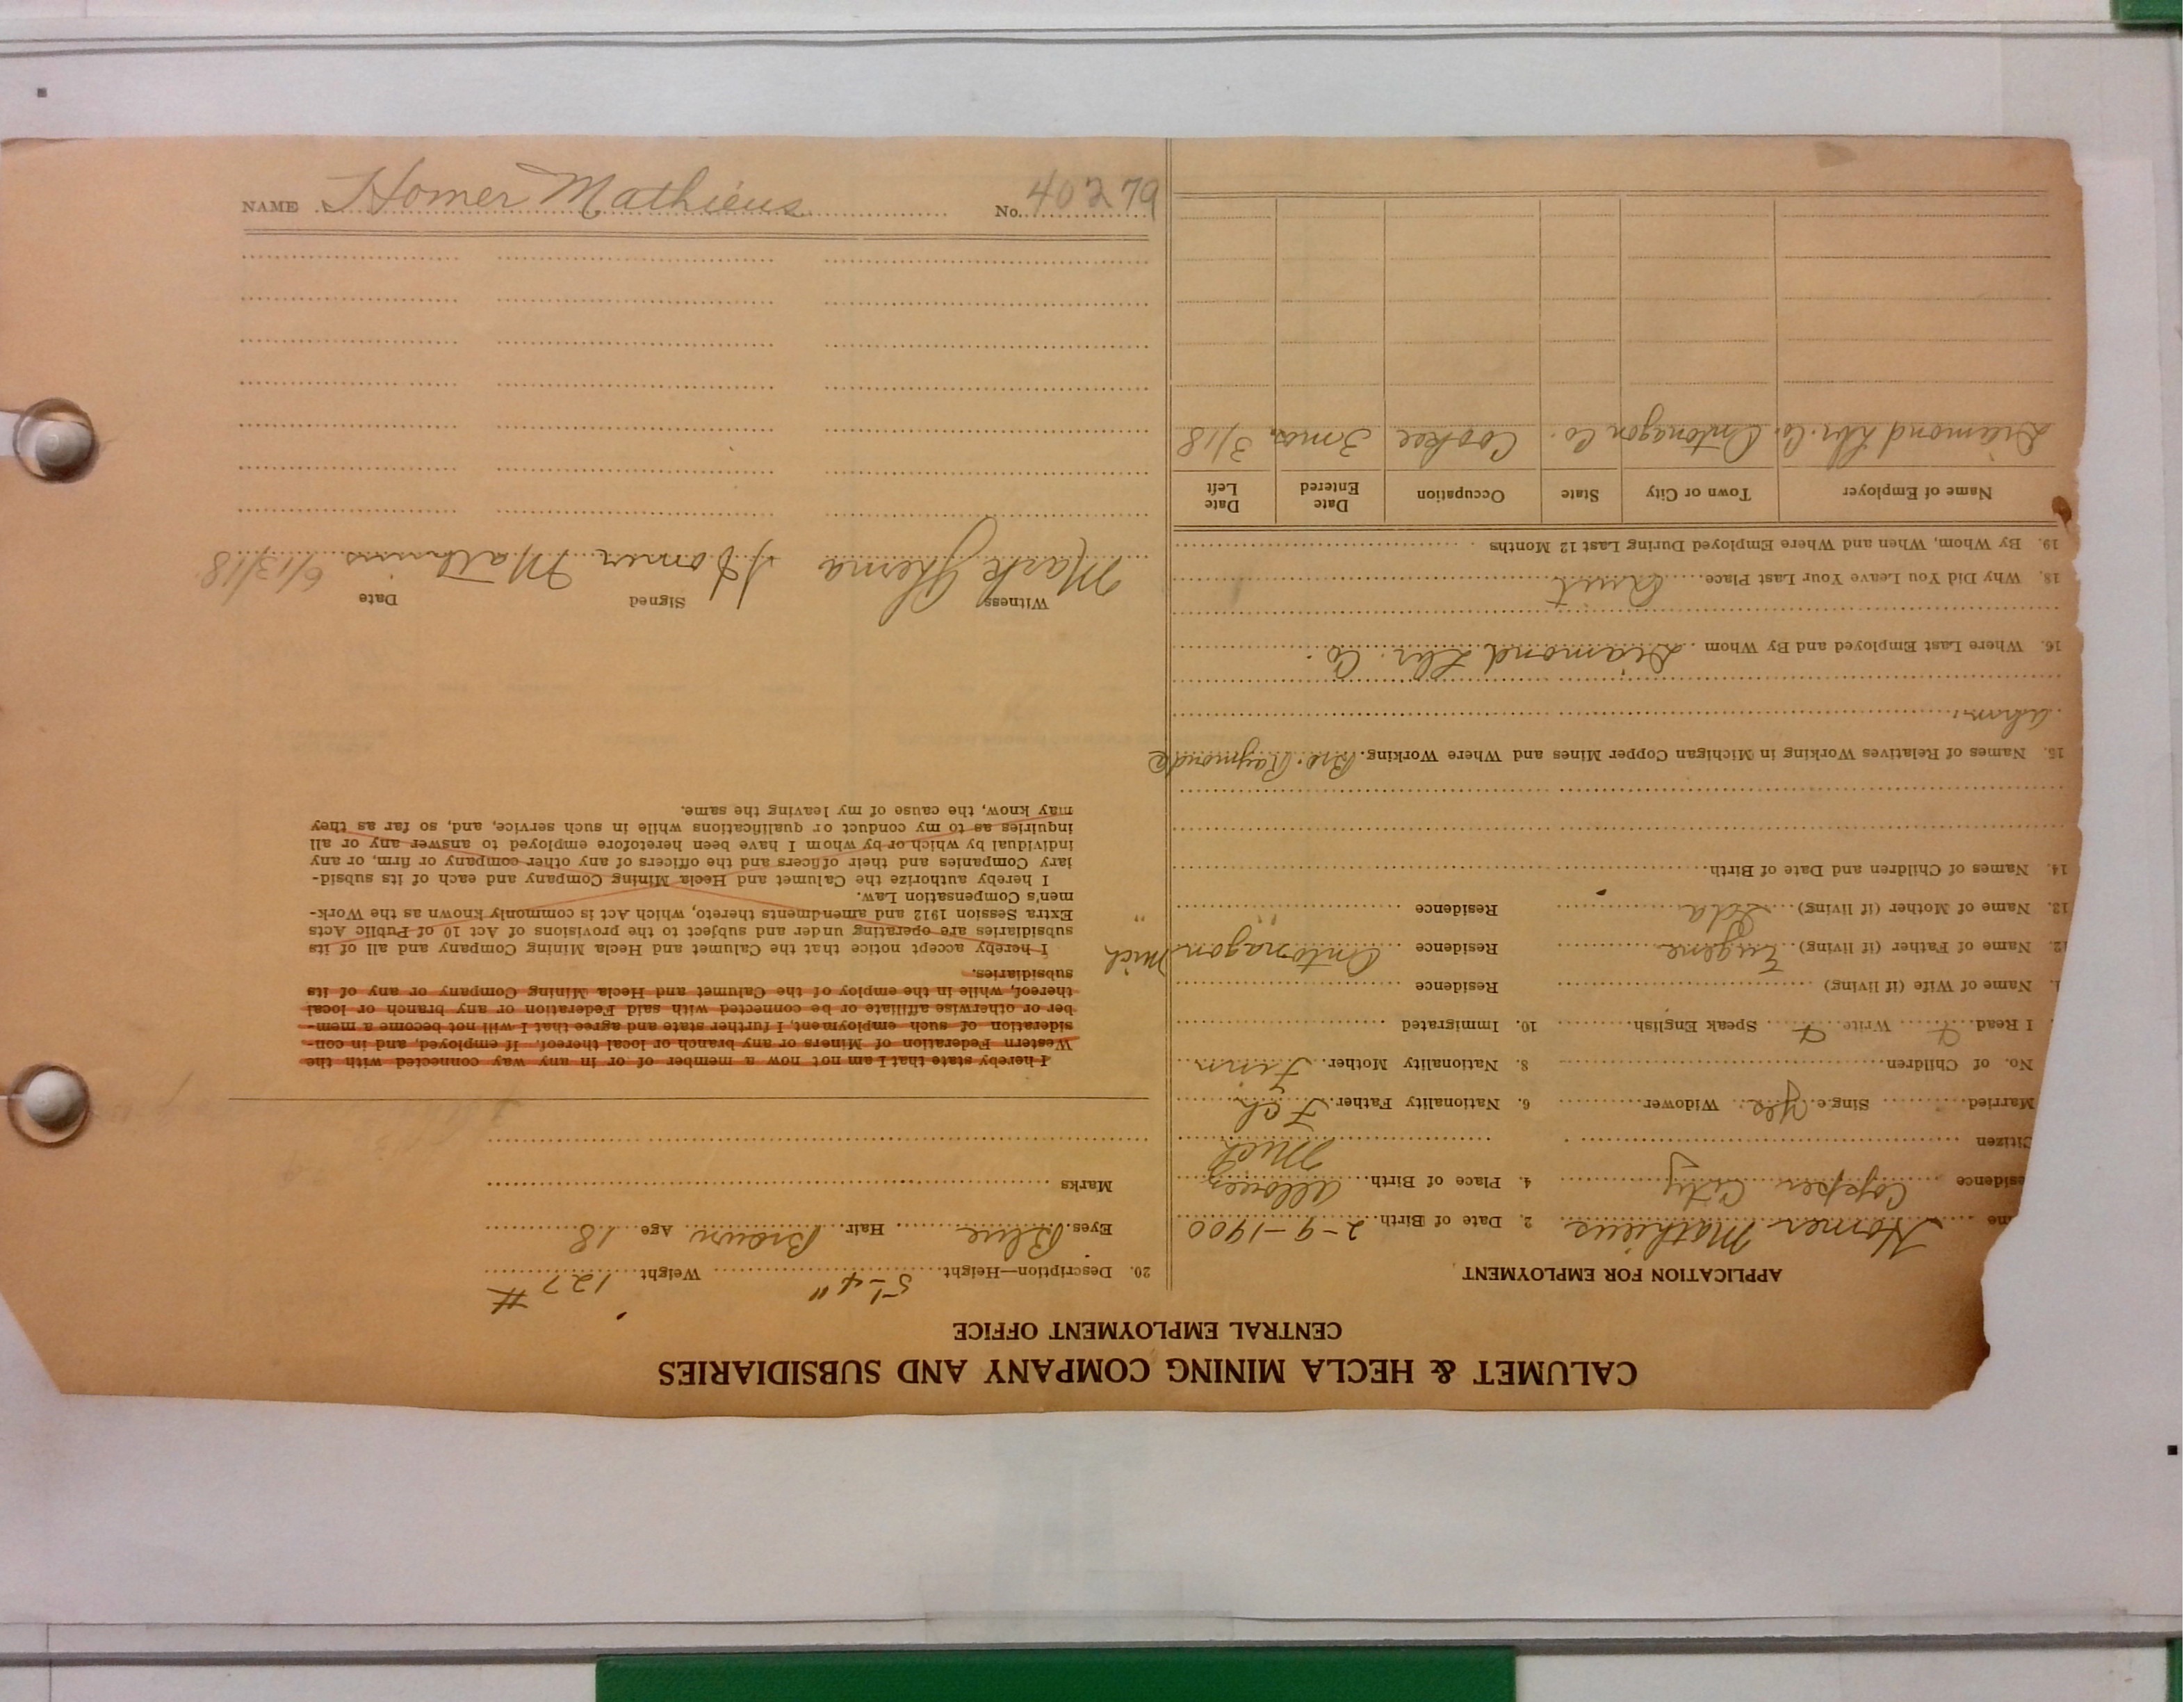 NAME Homer Mathieus No. 40279
CALUMET & HECLA MINING COMPANY AND SUBSIDIARIES
CENTRAL EMPLOYMENT OFFICE
APPLICATION FOR EMPLOYMENT
me Homer Mathieus 2. Date of Birth 2-9-1900
sidence Copper City 4. Place of Birth Allouez
Mich
Citizen
Married Sing.e yes Widower 6. Nationality Father Fch
No. of Children 8. Nationality Mother Finn
I Read Write Speak English 10. Immigrated
1. Name of Wife (if living) Residence
12. Name of Father (if living) Eugene Residence Ontonagon Mich
13. Name of Mother (if living) Ida Residence " "
14. Names of Children and Date of Birth
15. Names of Relatives Working in Michigan Copper Mines and Where Working. Bro. Raymond @
Ahm.
16. Where Last Employed and By Whom Diamond Lbr. Co.
18. Why Did You Leave Your Last Place Quit
19. By Whom, When and Where Employed During Last 12 Months
Name of Employer Town or City State Occupation Date Entered Date Left
Diamond Lbr. Co. Ontonagon Co. Cookee 3 mos. 3/18
20. Description—Height 5'-4" Weight 127 #
Eyes Blue Hair Brown Age 18
Marks
I hereby state that I am not now a member of or in any way connected with the
Western Federation of Miners or any branch or local thereof. If employed, and in con-
sideration of such employment, I further state and agree that I will not become a mem-
ber or otherwise affiliate or be connected with said Federation or any branch or local
thereof, while in the employ of the Calumet and Hecla Mining Company or any of its
subsidiaries.
I hereby accept notice that the Calumet and Hecla Mining Company and all of its
subsidiaries are operating under and subject to the provisions of Act 10 of Public Acts
Extra Session 1912 and amendments thereto, which Act is commonly known as the Work-
men's Compensation Law.
I hereby authorize the Calumet and Hecla Mining Company and each of its subsid-
iary Companies and their officers and the officers of any other company or firm, or any
individual by which or by whom I have been heretofore employed to answer any or all
inquiries as to my conduct or qualifications while in such service, and, so far as they
may know, the cause of my leaving the same.
Witness Signed Date
Mark Homer Mathieus 6/13/18